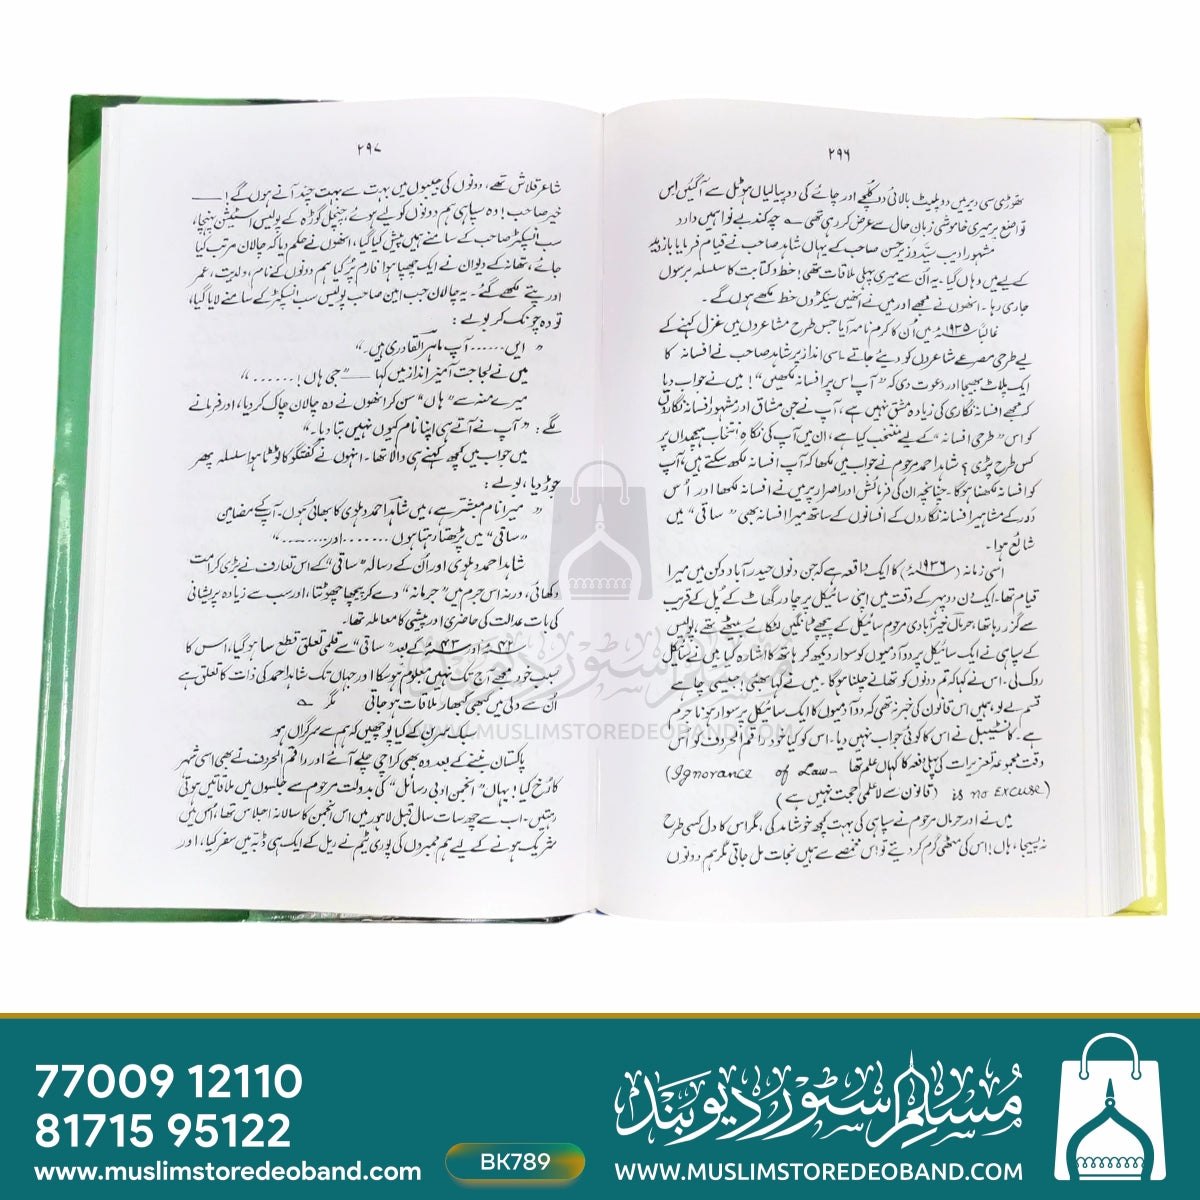 ۲۹۶
تھوڑی سی دیر میں دو پلیٹ بالائی دو کلچے اور چائے کی دو پیالیاں ہوٹل سے آگئیں اس
تواضع پر میری خاموشی زبان حال سے عرض کر رہی تھی ؎ چہ کند بے نوا ہمیں دارد
مشہور ادیب سیّد وزیر حسن صاحب کے یہاں شاہد صاحب نے قیام فرمایا بازدید
کے لیے میں وہاں گیا ۔ یہ ان سے میری پہلی ملاقات تھی! خط و کتابت کا سلسلہ برسوں
جاری رہا ۔ انھوں نے مجھے اور میں نے انھیں سیکڑوں خط لکھے ہوں گے ۔
غالباً ۱۹۳۵ء میں اُن کا کرم نامہ آیا جس طرح مشاعروں میں غزل کہنے کے
لیے طرحی مصرعے شاعروں کو دیئے جاتے ہیں اسی انداز پر شاہد صاحب نے افسانہ کا
ایک پلاٹ بھیجا اور دعوت دی کہ "آپ اس پر افسانہ لکھیں"! میں نے جواب دیا
کہ مجھے افسانہ نگاری کی زیادہ مشق نہیں ہے ، آپ نے جن مشاق اور مشہور افسانہ نگاروں
کو اس "طرحی افسانہ" کے لیے منتخب کیا ہے ، ان میں آپ کی نگاہِ انتخاب ہیچمداں پر
کس طرح پڑی ؟ شاہد احمد مرحوم نے جواب میں لکھا کہ آپ افسانہ لکھ سکتے ہیں ، آپ
کو افسانہ لکھنا ہوگا ۔ چنانچہ ان کی فرمائش اور اصرار پر میں نے افسانہ لکھا اور اُس
دور کے مشاہیر افسانہ نگاروں کے افسانوں کے ساتھ میرا افسانہ بھی "ساقی" میں
شائع ہوا ۔
اسی زمانہ (۱۹۳۶ء) کا ایک واقعہ ہے کہ جن دنوں حیدرآباد دکن میں میرا
قیام تھا ۔ ایک دن دوپہر کے وقت میں اپنی سائیکل پر چادر گھاٹ کے پُل کے قریب
سے گزر رہا تھا ، حرماں خیرآبادی مرحوم سائیکل کے پیچھے ٹانگیں لٹکائے بیٹھے تھے ، پولیس
کے سپاہی نے ایک سائیکل پر دو آدمیوں کو سوار دیکھ کر ہاتھ کا اشارہ کیا میں نے سائیکل
روک لی ۔ اس نے کہا کہ تم دونوں کو تھانے چلنا ہوگا ۔ میں نے کہا بھئی! جیسی چاہے
قسم لے لو ، ہمیں اس قانون کی خبر نہ تھی کہ دو آدمیوں کا ایک سائیکل پر سوار ہونا جرم
ہے ۔ کانسٹیبل نے اس کا کوئی جواب نہیں دیا ۔ اس کو کیا خود راقم الحروف کو اس
وقت مجموعہ تعزیرات کی پہلی دفعہ کا کہاں علم تھا ۔ (Ignorance of Law
is no excuse) (قانون سے لاعلمی حجت نہیں ہے)
میں نے اور حرماں مرحوم نے سپاہی کی بہت کچھ خوشامد کی ، مگر اس کا دل کسی طرح
نہ پسیجا ، ہاں! اس کی مٹھی گرم کر دیتے تو اس مخمصے سے ہمیں نجات مل جاتی مگر ہم دونوں
۲۹۷
شاعر قلاش تھے ، دونوں کی جیبوں میں بہت سے بہت چند آنے ہوں گے! ــــ
خیر صاحب! وہ سپاہی ہم دونوں کو لیے ہوئے ، چنچل گوڑہ کے پولیس اسٹیشن پہنچا ،
سب انسپکٹر صاحب کے سامنے ہمیں پیش کیا گیا ، انھوں نے حکم دیا کہ چالان مرتب کیا
جائے ، تھانہ کے دیوان نے ایک چھپا ہوا فارم پُر کیا ہم دونوں کے نام ، ولدیت ، عمر
اور پتے لکھے گئے ۔ یہ چالان جب امین صاحب پولیس سب انسپکٹر کے سامنے لایا گیا ،
تو وہ چونک کر بولے :
"ایں ...... آپ ماہر القادری ہیں ۔"
میں نے لجاجت آمیز انداز میں کہا ــــ "جی ہاں ! ......"
میرے منہ سے "ہاں" سن کر انھوں نے وہ چالان چاک کر دیا ، اور فرمانے
لگے : "آپ نے آتے ہی اپنا نام کیوں نہیں بتا دیا ۔"
میں جواب میں کچھ کہنے ہی والا تھا ۔ انہوں نے گفتگو کا ٹوٹا ہوا سلسلہ پھر
جوڑ دیا ، بولے :
"میرا نام مبشر ہے ، میں شاہد احمد دہلوی کا بھائی ہوں ۔ آپ کے مضامین
"ساقی" میں پڑھتا رہتا ہوں ....... اور ......."
شاہد احمد دہلوی اور اُن کے رسالہ "ساقی" کے اس تعارف نے بڑی کرامت
دکھائی ، ورنہ اس جرم میں "جرمانہ" دے کر پیچھا چھوٹتا ، اور سب سے زیادہ پریشانی
کی بات عدالت کی حاضری اور پیشی کا معاملہ تھا ۔
۴۲ء اور ۴۳ء کے بعد "ساقی" سے قلمی تعلق قطع سا ہو گیا ، اس کا
سبب خود مجھے آج تک نہیں معلوم ہو سکا اور جہاں تک شاہد احمد کی ذات کا تعلق ہے
اُن سے دلی میں کبھی کبھار ملاقات ہو جاتی مگر ؎
سبک سر بن کے کیا پوچھیں کہ ہم سے سرگراں ہو
پاکستان بننے کے بعد وہ بھی کراچی چلے آئے اور راقم الحروف نے بھی اسی شہر
کا رُخ کیا! یہاں "انجمن ادبی رسائل" کی بدولت مرحوم سے جلسوں میں ملاقاتیں ہوتی
رہتیں ۔ اب سے چھ سات سال قبل لاہور میں اس انجمن کا سالانہ اجلاس تھا ، اُس میں
شریک ہونے کے لیے ہم ممبروں کی پوری ٹیم نے ریل کے ایک ہی ڈبّہ میں سفر کیا ، اور
مسلم سٹور دیوبند
WWW.MUSLIMSTOREDEOBAND.COM
77009 12110
81715 95122
www.muslimstoredeoband.com
BK789
مسلم سٹور دیوبند
WWW.MUSLIMSTOREDEOBAND.COM